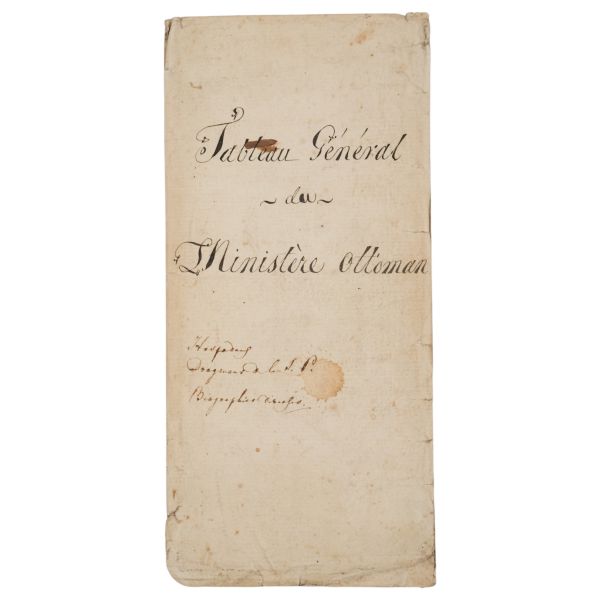 Tableau Général
~ du ~
Ministère Ottoman
Hospodars
Dragmans de la S. P.
Biographies